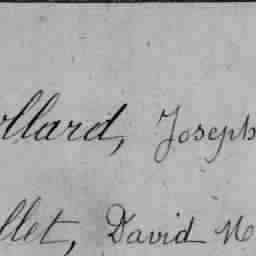 ollard, Joseph
llet, David M